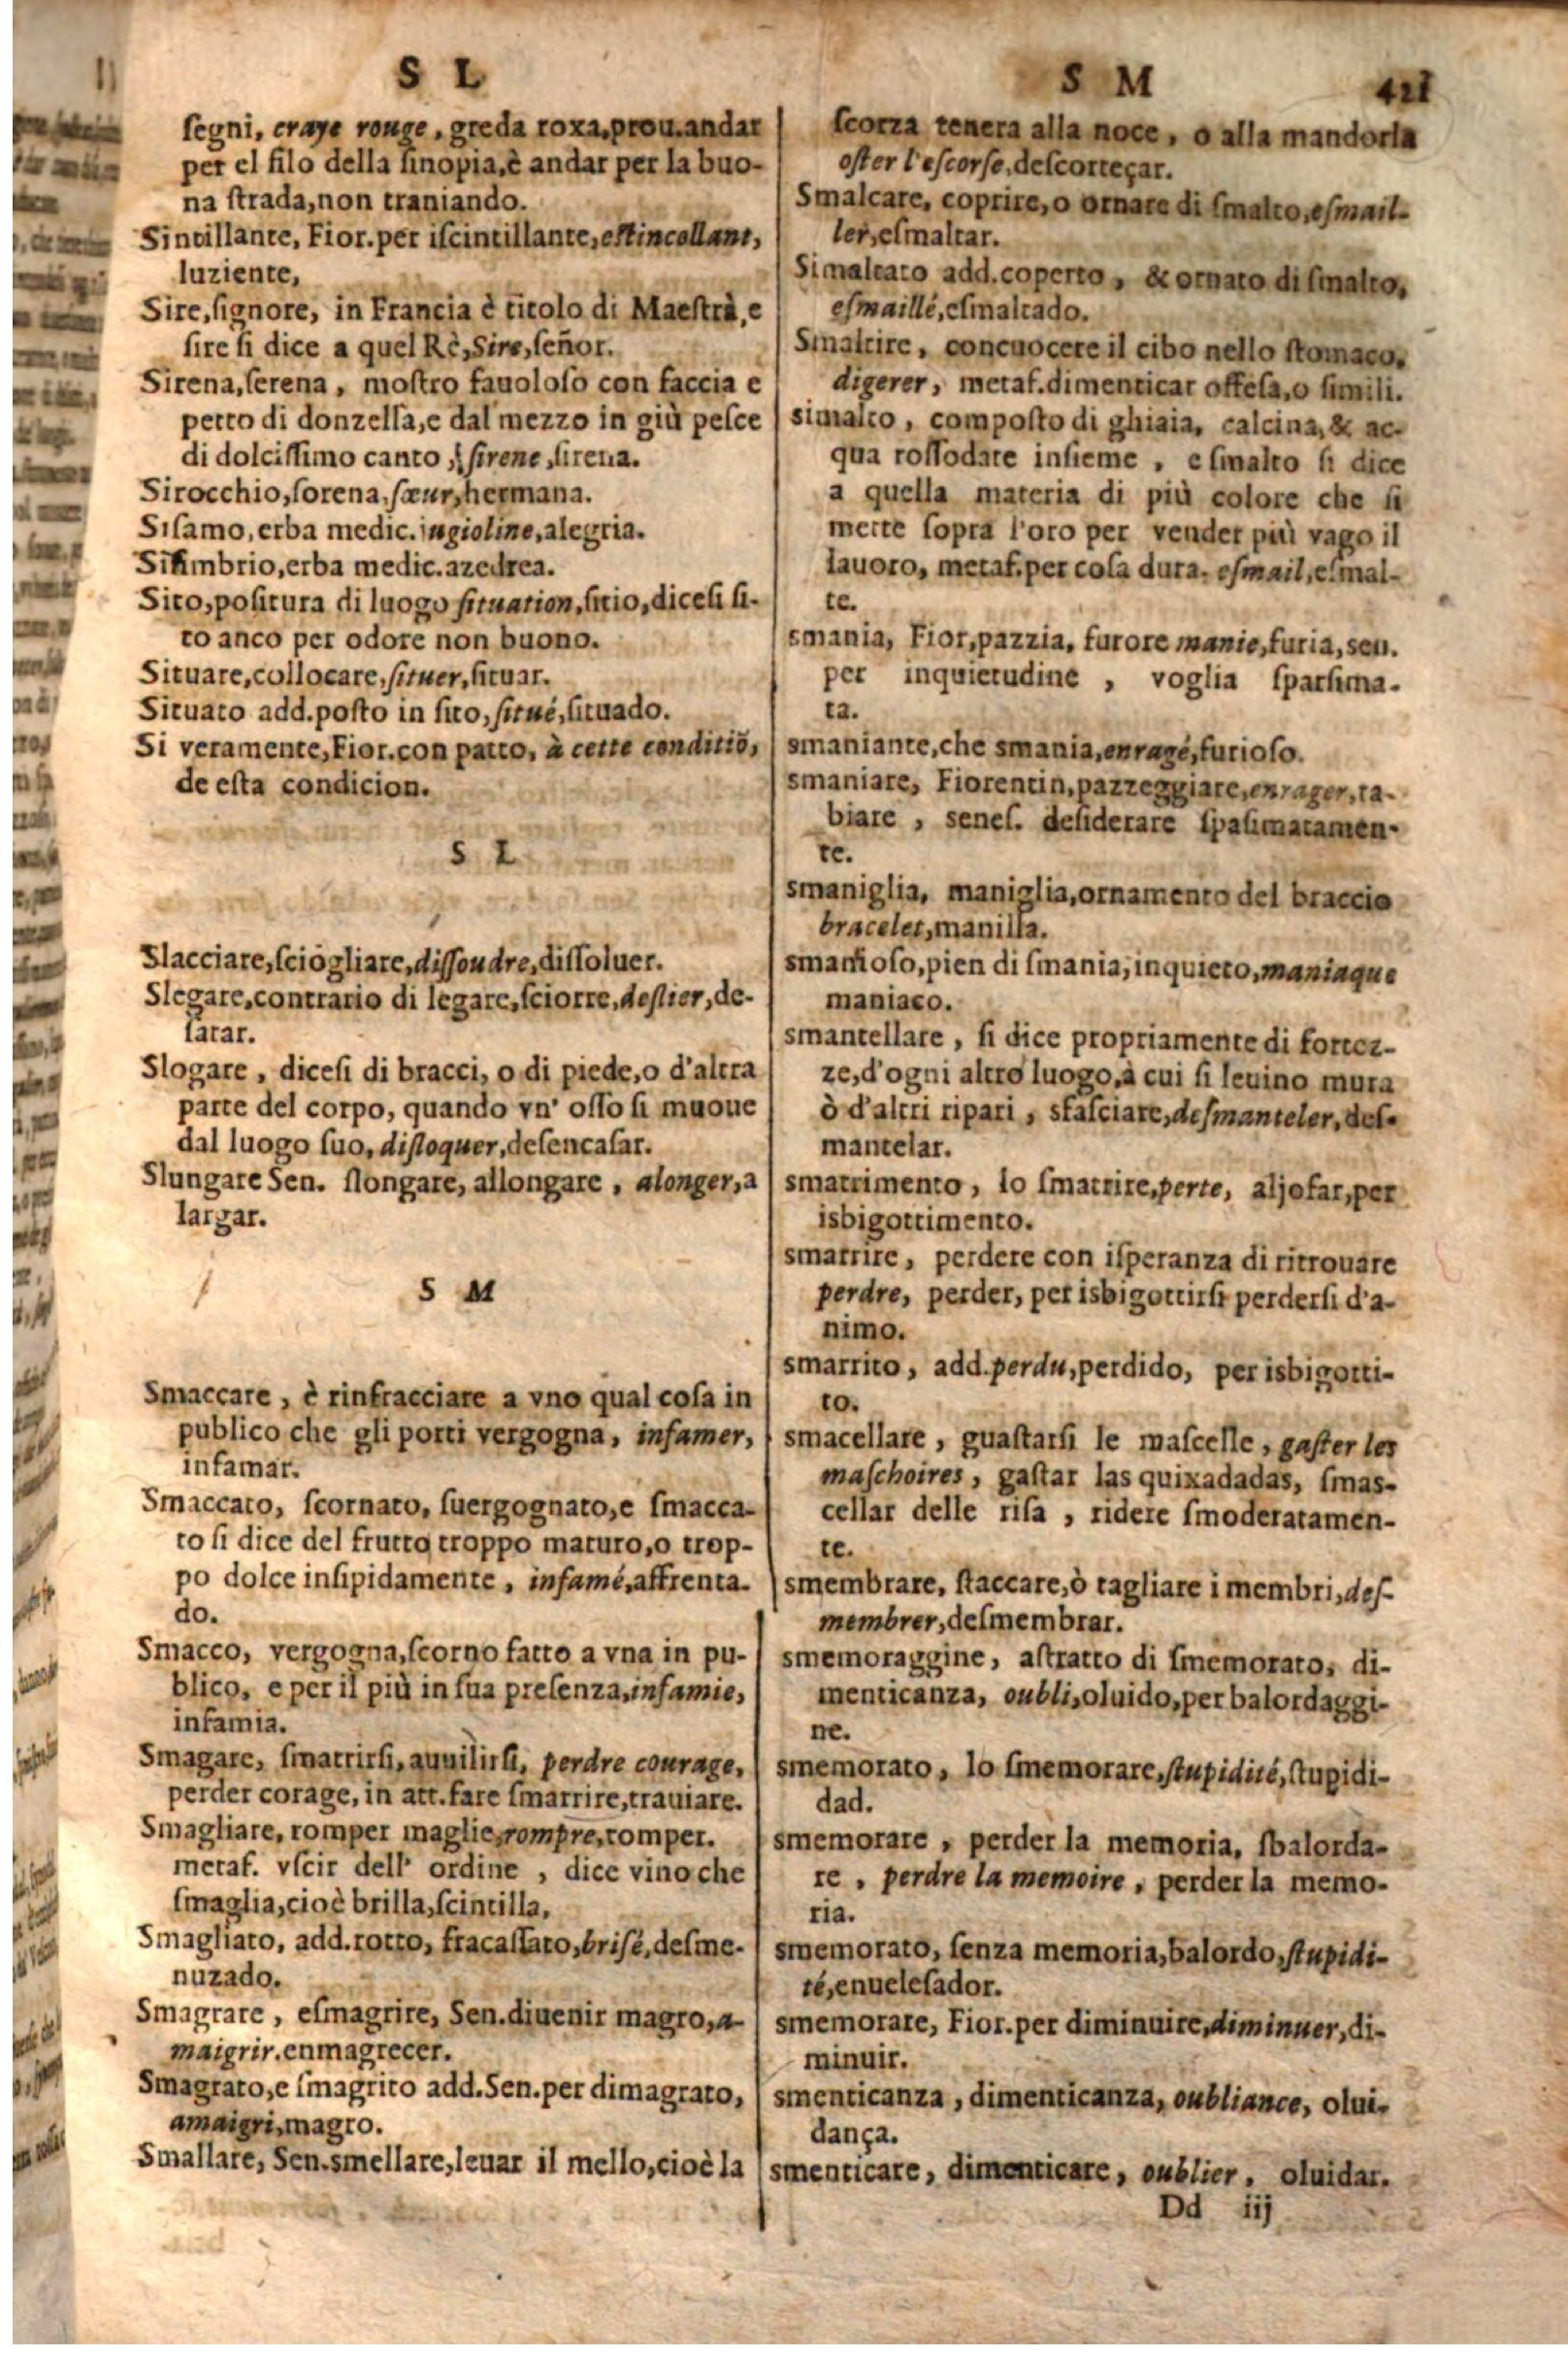 S L
segni, craye rouge, greda roxa, prou. andar
per el filo della sinopia, è andar per la buo-
na strada, non traniando.
Sintillante, Fior. per iscintillante, estincellant,
luziente,
Sire, signore, in Francia è titolo di Maestrà, e
sire si dice a quel Rè, Sire, señor.
Sirena, serena, mostro fauoloso con faccia e
petto di donzella, e dal mezzo in giù pesce
di dolcissimo canto, sirene, sirena.
Sirocchio, sorena, sœur, hermana.
Sisamo, erba medic. iugioline, alegria.
Sisimbrio, erba medic. azedrea.
Sito, positura di luogo situation, sitio, dicesi si-
to anco per odore non buono.
Situare, collocare, situer, situar.
Situato add. posto in sito, situé, situado.
Si veramente, Fior. con patto, à cette conditiõ,
de esta condicion.
S L
Slacciare, sciogliare, dissoudre, dissoluer.
Slegare, contrario di legare, sciorre, deslier, de-
satar.
Slogare, dicesi di bracci, o di piede, o d'altra
parte del corpo, quando vn' osso si muoue
dal luogo suo, disloquer, desencasar.
Slungare Sen. slongare, allongare, alonger, a
largar.
S M
Smaccare, è rinfracciare a vno qual cosa in
publico che gli porti vergogna, infamer,
infamar.
Smaccato, scornato, suergognato, e smacca-
to si dice del frutto troppo maturo, o trop-
po dolce insipidamente, infamé, affrenta-
do.
Smacco, vergogna, scorno fatto a vna in pu-
blico, e per il più in sua presenza, infamie,
infamia.
Smagare, smarrirsi, auuilirsi, perdre courage,
perder corage, in att. fare smarrire, trauiare.
Smagliare, romper maglie, rompre, romper.
metaf. vscir dell' ordine, dice vino che
smaglia, cioè brilla, scintilla,
Smagliato, add. rotto, fracassato, brisé, desme-
nuzado.
Smagrare, esmagrire, Sen. diuenir magro, a-
maigrir. enmagrecer.
Smagrato, e smagrito add. Sen. per dimagrato,
amaigri, magro.
Smallare, Sen. smellare, leuar il mello, cioè la
S M 421
scorza tenera alla noce, o alla mandorla
oster l'escorse, descorteçar.
Smalcare, coprire, o ornare di smalto, esmail-
ler, esmaltar.
Simaltato add. coperto, & ornato di smalto,
esmaillé, esmaltado.
Smaltire, concuocere il cibo nello stomaco,
digerer, metaf. dimenticar offesa, o simili.
simalto, composto di ghiaia, calcina, & ac-
qua rossodate insieme, e smalto si dice
a quella materia di più colore che si
mette sopra l'oro per vender più vago il
lauoro, metaf. per cosa dura. esmail, esmal-
te.
smania, Fior, pazzia, furore manie, furia, sen.
per inquietudine, voglia sparsima-
ta.
smaniante, che smania, enragé, furioso.
smaniare, Fiorentin, pazzeggiare, enrager, ra-
biare, senes. desiderare spasimatamen-
te.
smaniglia, maniglia, ornamento del braccio
bracelet, manilla.
smanioso, pien di smania, inquieto, maniaque
maniaco.
smantellare, si dice propriamente di fortez-
ze, d'ogni altro luogo, à cui si leuino mura
ò d'altri ripari, sfasciare, desmanteler, des-
mantelar.
smarrimento, lo smarrire, perte, aljofar, per
isbigottimento.
smarrire, perdere con isperanza di ritrouare
perdre, perder, per isbigottirsi perdersi d'a-
nimo.
smarrito, add. perdu, perdido, per isbigotti-
to.
smacellare, guastarsi le mascelle, gaster les
maschoires, gastar las quixadadas, smas-
cellar delle risa, ridere smoderatamen-
te.
smembrare, staccare, ò tagliare i membri, des-
membrer, desmembrar.
smemoraggine, astratto di smemorato, di-
menticanza, oubli, oluido, per balordaggi-
ne.
smemorato, lo smemorare, stupidité, stupidi-
dad.
smemorare, perder la memoria, sbalorda-
re, perdre la memoire, perder la memo-
ria.
smemorato, senza memoria, balordo, stupidi-
té, enuelesador.
smemorare, Fior. per diminuire, diminuer, di-
minuir.
smenticanza, dimenticanza, oubliance, olui-
dança.
smenticare, dimenticare, oublier, oluidar.
Dd iij